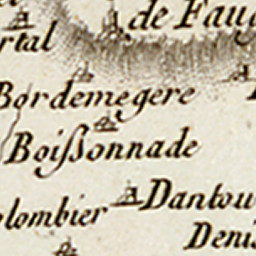 de Faug
rtal
Bordemegere
Boiſſonnade
Dantou
olombier
Denis